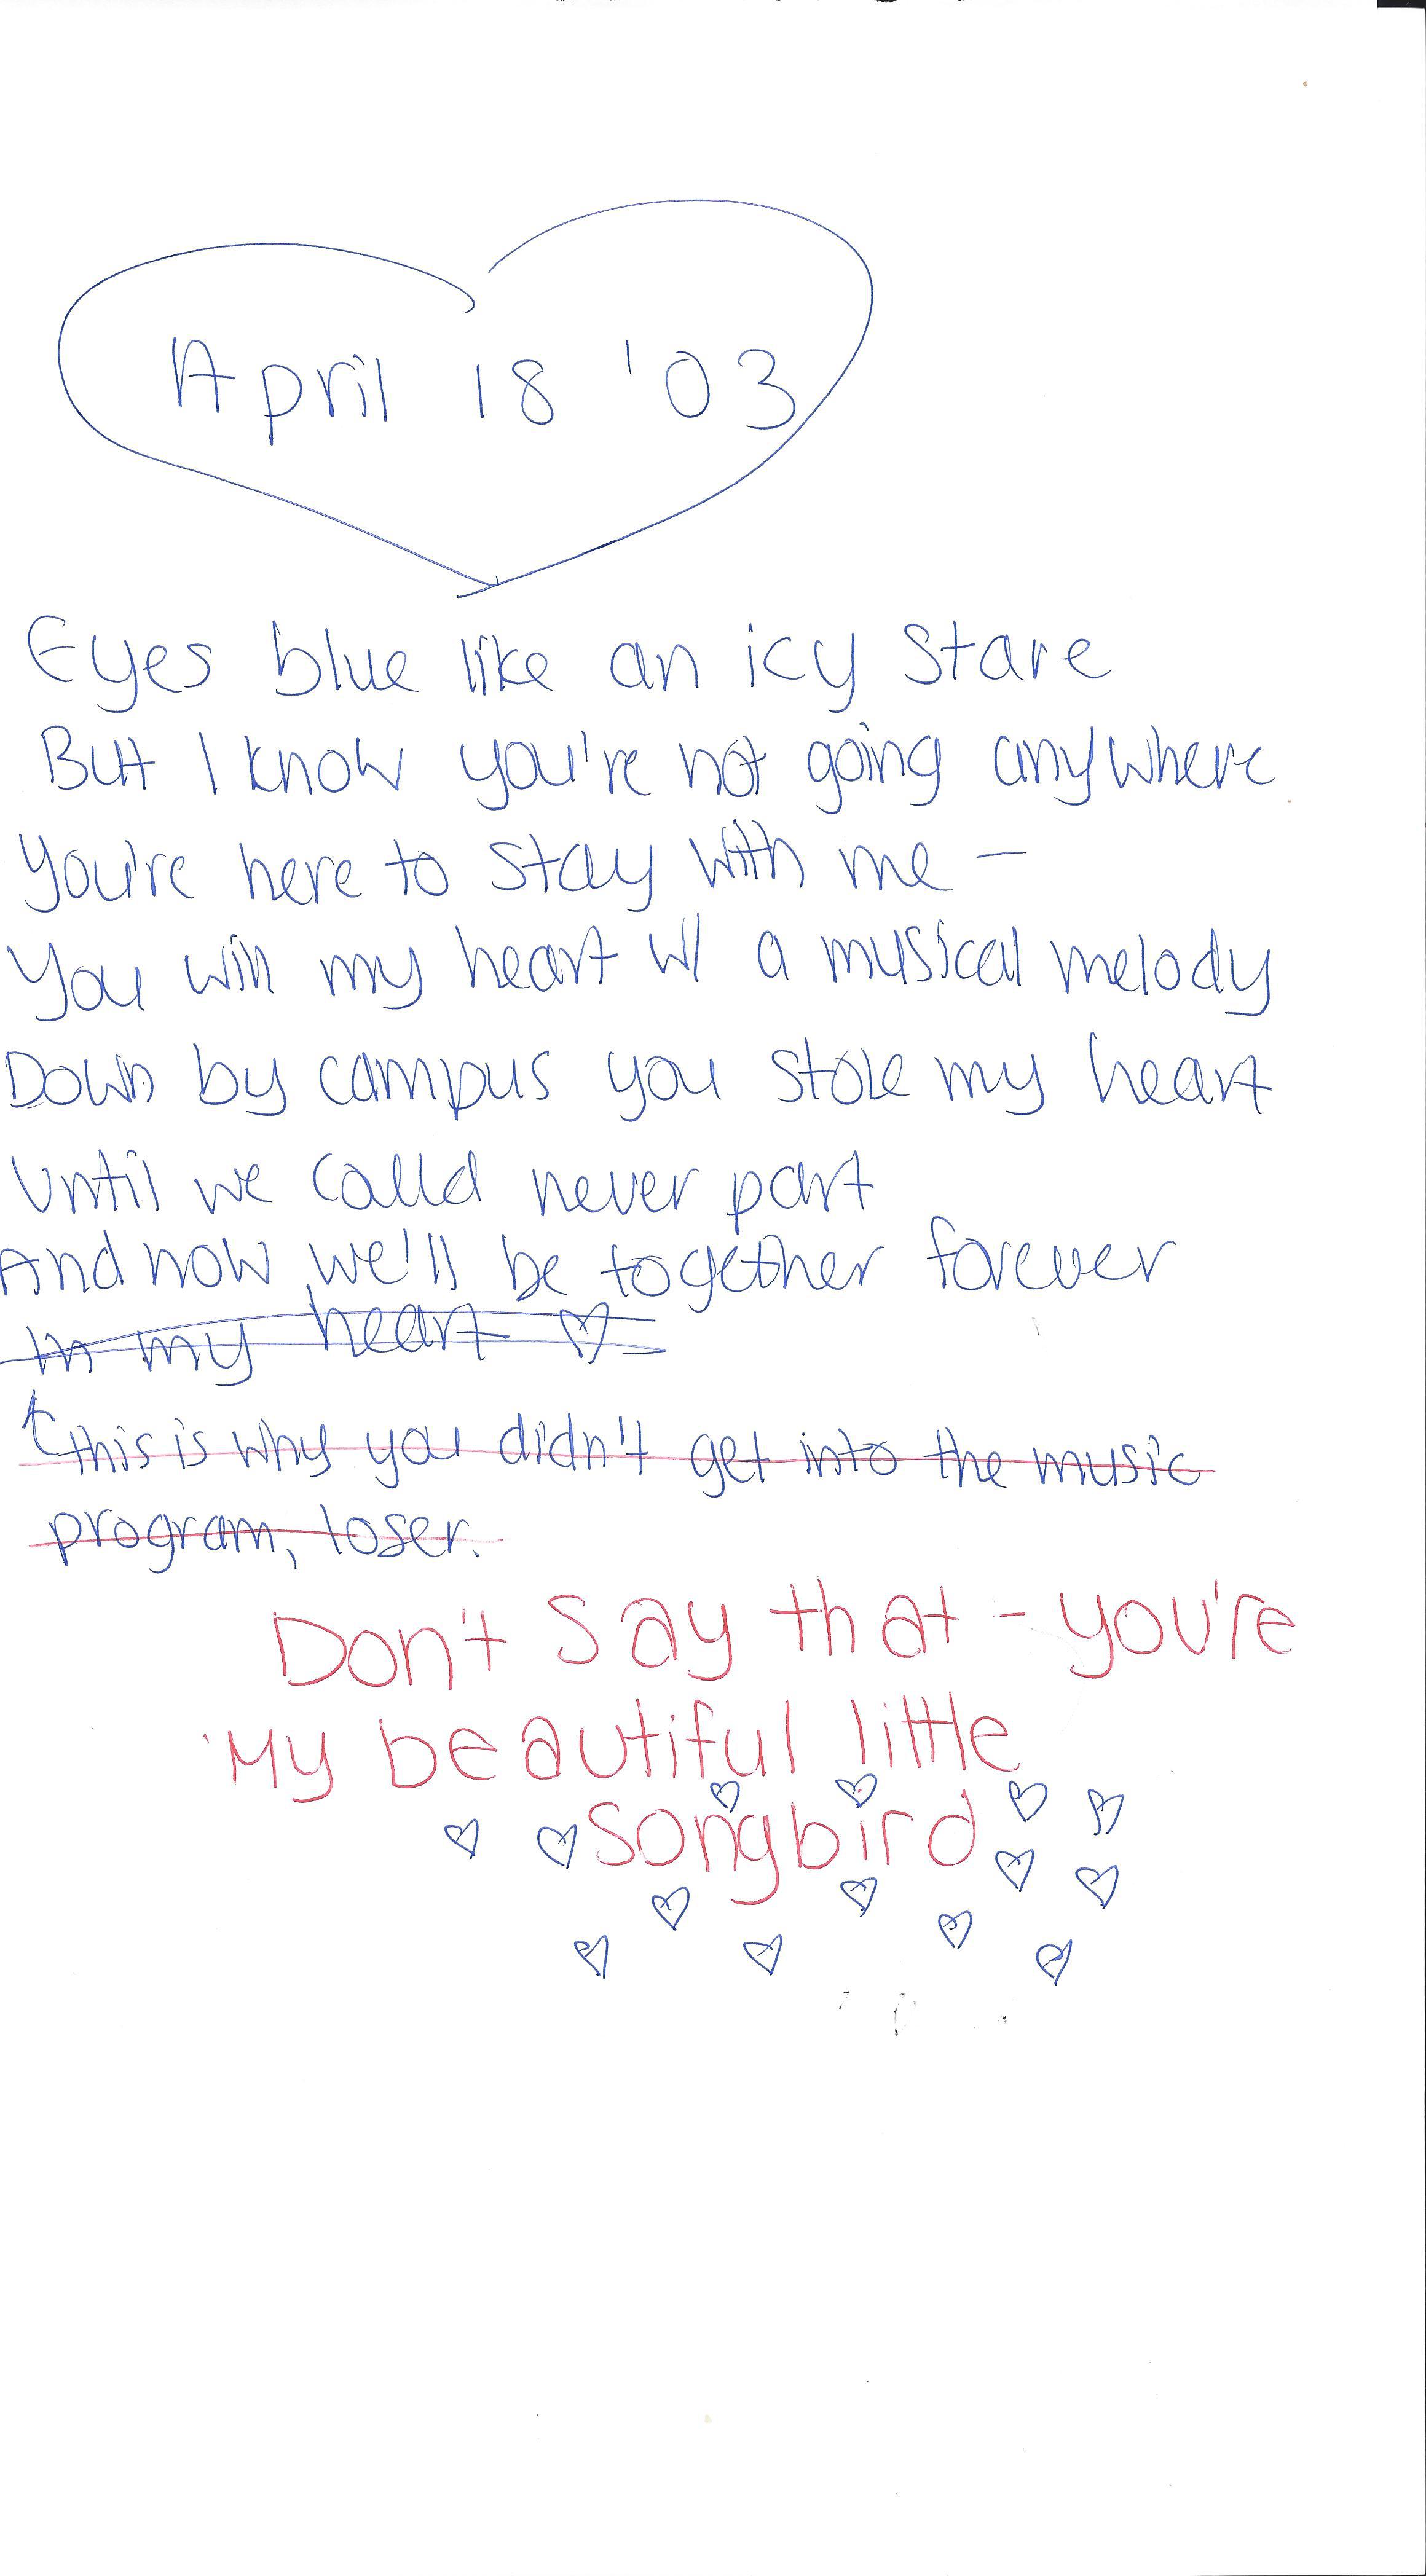 April 18 '03
Eyes blue like an icy stare
But I know you're not going anywhere
You're here to stay with me –
You win my heart w/ a musical melody
Down by campus you stole my heart
Until we could never part
And now we'll be together forever
in my heart ♡
↑ this is why you didn't get into the music
program, loser.
Don't say that - you're
My beautiful little
songbird